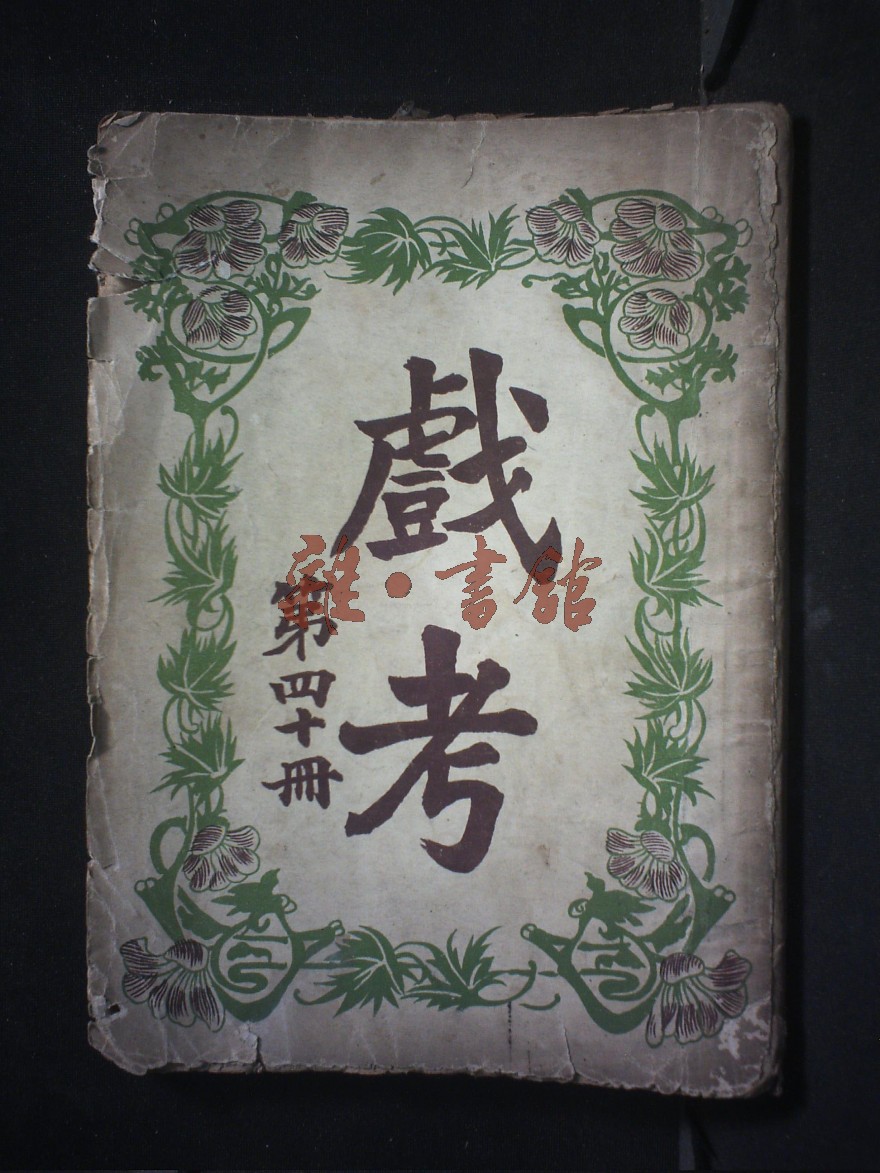 戲考
第四十冊
雜·書館